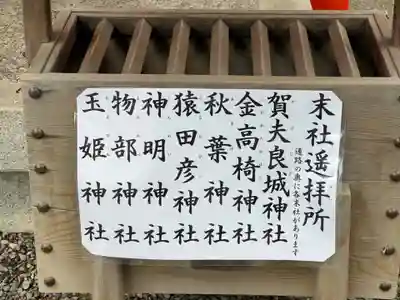 末社遥拝所
通路の奥に各末社があります
賀夫良城神社
金高椅神社
秋葉神社
猿田彦神社
神明神社
物部神社
玉姫神社